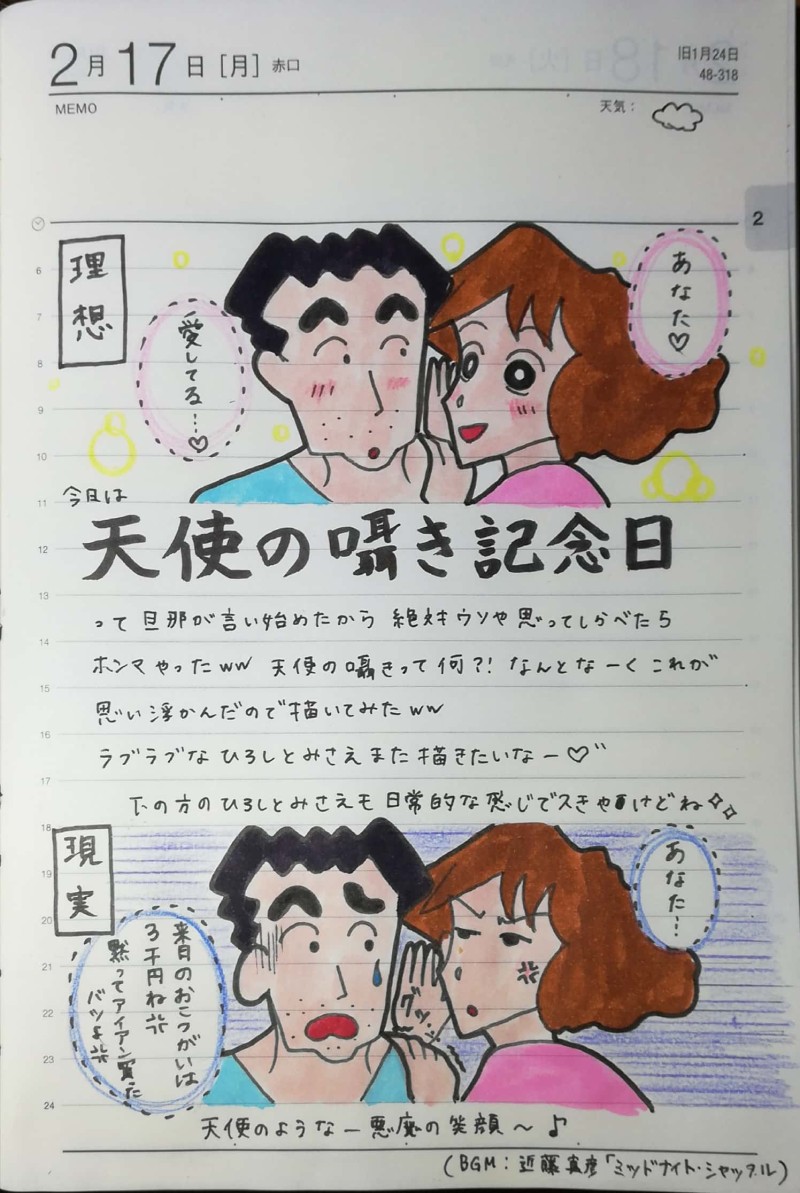 2月17日[月]赤口
旧1月24日
48-318
MEMO
天気：
2
理想
あなた♡
愛してる…♡
6
7
8
9
10
11
今日は
12
天使の囁き記念日
13
って旦那が言い始めたから 絶対ウソや思ってしらべたら
14
ホンマやったww 天使の囁きって何?! なんとなーくこれが
15
思い浮かんだので描いてみたww
16
ラブラブなひろしとみさえまた描きたいなー♡"
17
下の方のひろしとみさえも日常的な感じでスきやけどね✧✧
18
現実
あなた…
来月のおこづかいは
3千円ね
黙ってアイアン買った
バツよ
グッ…
19
20
21
22
23
24
天使のような一悪魔の笑顔〜♪
(BGM：近藤真彦「ミッドナイト・シャッフル)